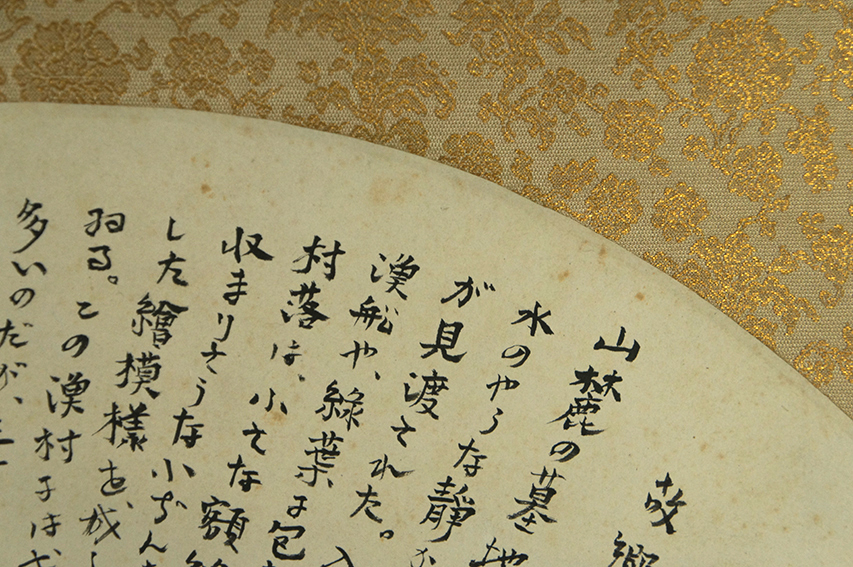 故郷
山麓の墓地
水のやうな静か
が見渡された。入
漁船や、緑葉に包
村落は、小さな額
収まりさうな小ぢん
した繪模様を、成し
羽る。この漁村には
多いのだが、